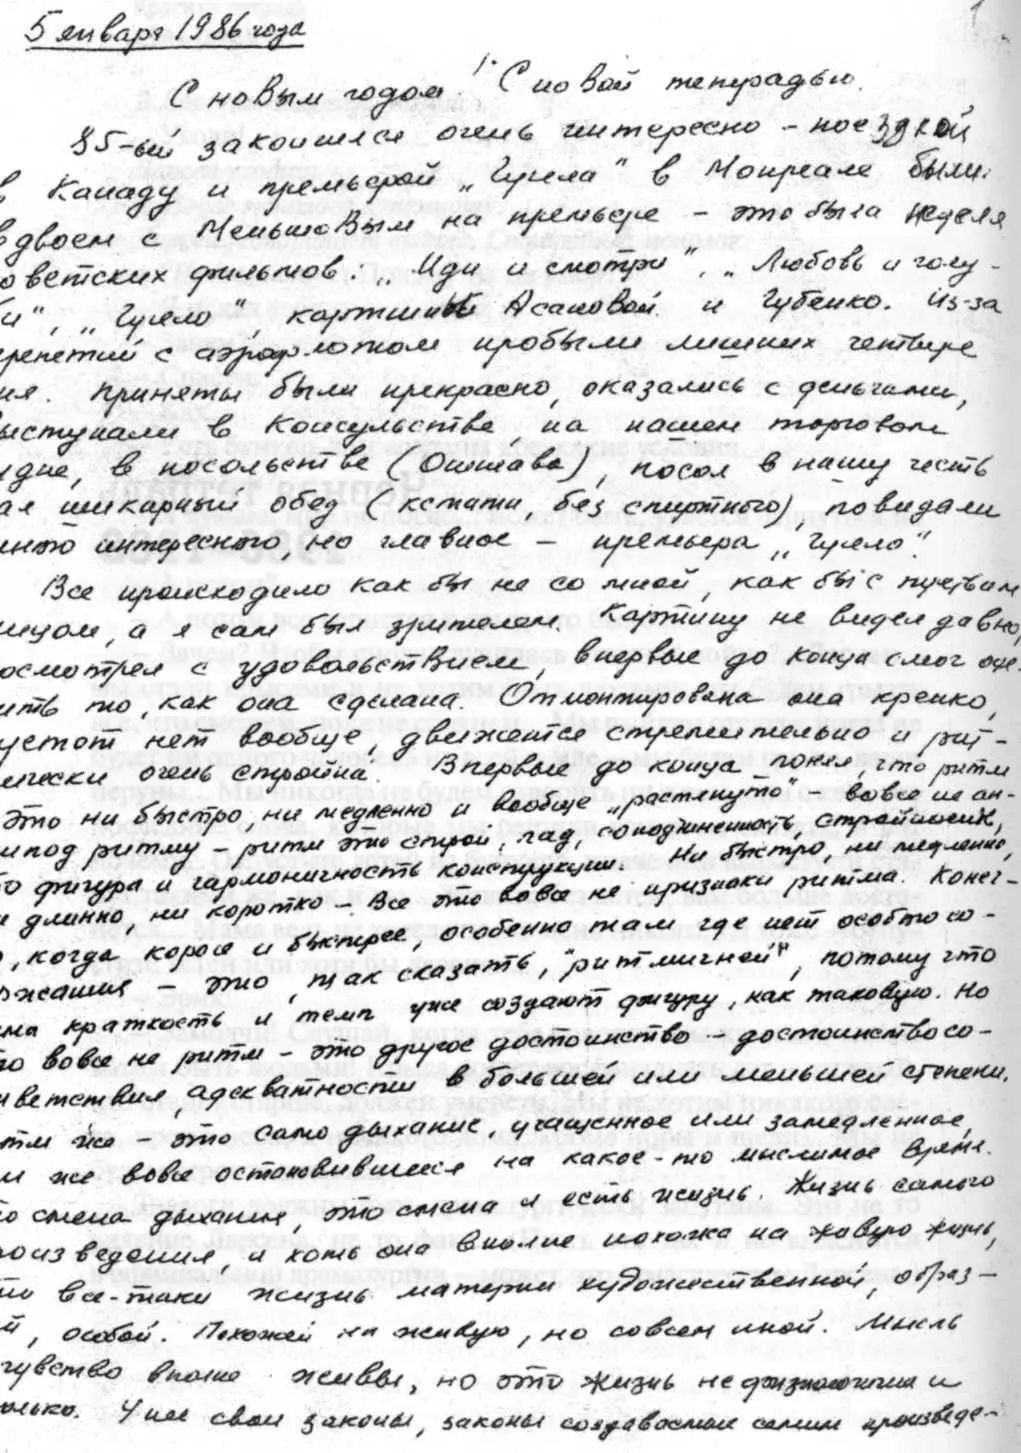 1
5 января 1986 года
С новым годом! С новой тетрадью.
85-ый закончился очень интересно – поездкой
в Канаду и премьерой „Чучела" в Монреале были
вдвоем с Меньшовым на премьере – это была неделя
оветских фильмов: „Иди и смотри", „Любовь и голу-
би", „Чучело", картины Асановой и Губенко. Из-за
ерепетий с аэрофлотом пробыли лишних четыре
ня. Приняты были прекрасно, оказались с деньгами,
ыступали в Консульстве, на нашем торговом
удне, в посольстве (Оттава), посол в нашу честь
ал шикарный обед (кстати, без спиртного), повидали
ного интересного, но главное – премьера „Чучело".
Все происходило как бы не со мной, как бы с
ицом, а я сам был зрителем. Картину не видел давно,
осмотрел с удовольствием, впервые до конца смог оце-
ить то, как она сделана. Отмонтирована она крепко,
устот нет вообще, движется стремительно и рит-
мически очень стройна. Впервые до конца понял, что ритм
это ни быстро, ни медленно и вообще „растянуто" – вовсе не ан-
ипод ритму – ритм это строй, лад, соподчиненность, стройность,
то фигура и гармоничность конструкции. Ни быстро, ни медленно,
и длинно, ни коротко – все это вовсе не признаки ритма. Конеч-
о, когда короче и быстрее, особенно там где нет особого со-
ржания – это, так сказать, "ритмичней", потому что
ама краткость и темп уже создают фигуру, как таковую. Но
то вовсе не ритм – это другое достоинство – достоинство со-
ответствия, адекватности в большей или меньшей степени.
итм же – это само дыхание, учащенное или замедленное,
ли же вовсе остановившееся на какое-то мыслимое время.
то смена дыхания, это смена и есть жизнь. Жизнь самого
роизведения, и хоть она вполне похожа на живую жизнь,
то все-таки жизнь материи художественной, образ-
ой, особой. Похожей на живую, но совсем иной. Мысль
чувство вполне живы, но это жизнь не физиологична и
олько. У нее свои законы, законы создаваемые самим произведе-